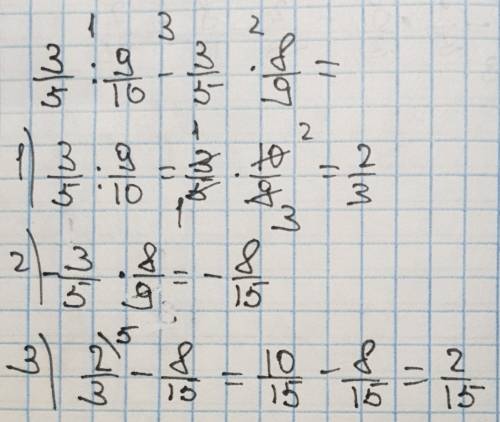 1 3 2
3/5 : 9/10 - 3/5 · 8/9 =
1) 3/5 : 9/10 = 3/5 · 10/9 = 2/3
2) - 3/5 · 8/9 = - 8/15
3) 2/3 - 8/15 = 10/15 - 8/15 = 2/15